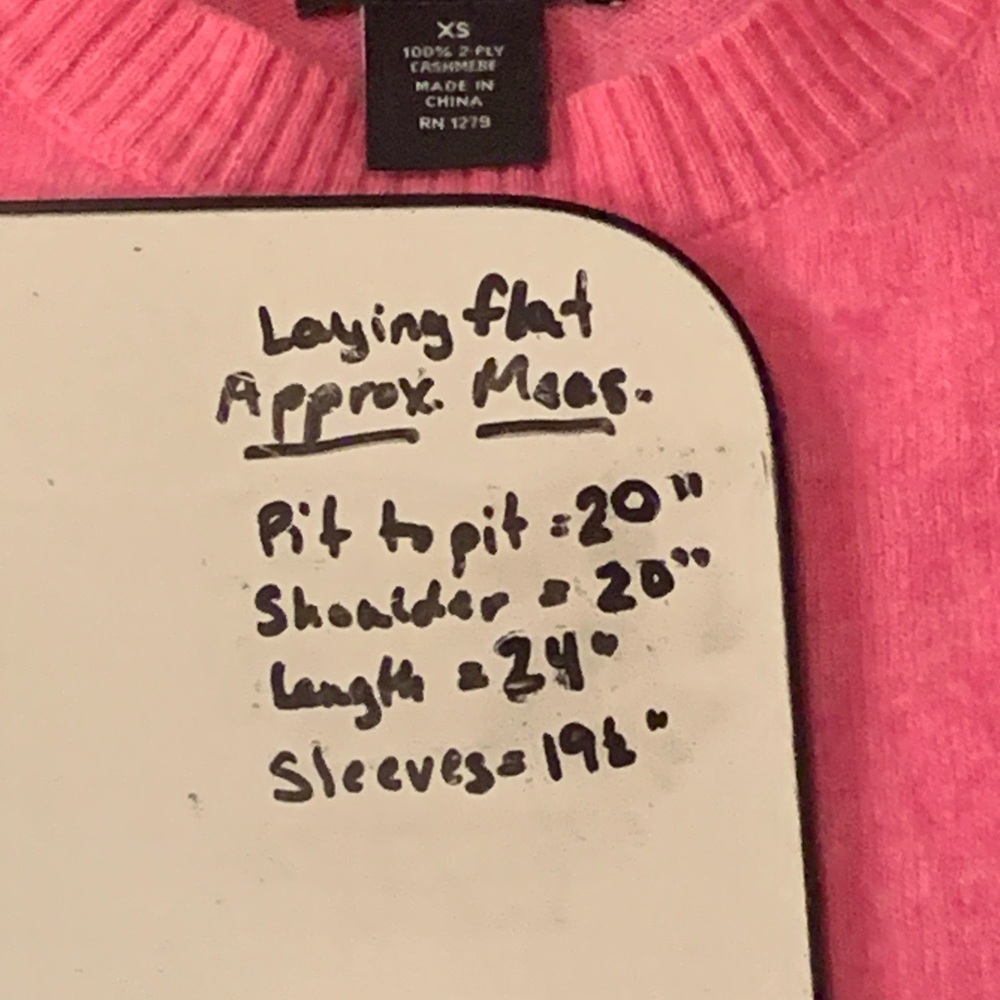 XS
100% 2-PLY
CASHMERE
MADE IN
CHINA
RN 1279
Laying flat
Approx. Meas.
Pit to pit = 20"
Shoulder = 20"
Length = 24"
Sleeves = 19½"